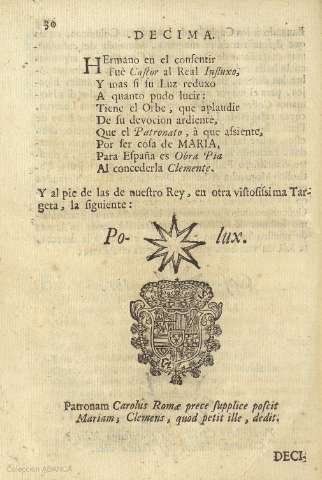 30
DECIMA.
HErmano en el consentir
Fuè Castor al Real Influxo,
Y mas si su Luz reduxo
A quanto pudo lucir:
Tiene el Orbe, que aplaudir
De su devocion ardiente,
Que el Patronato, à que assiente,
Por ser cosa de MARIA,
Para España es Obra Pia
Al concederla Clemente.
Y al pie de las de nuestro Rey, en otra vistosissima Tar-
geta, la siguiente:
Po- lux.
Patronam Carolus Romæ prece supplice poscit
Mariam; Clemens, quod petit ille, dedit.
DECI-
Colección ABANCA